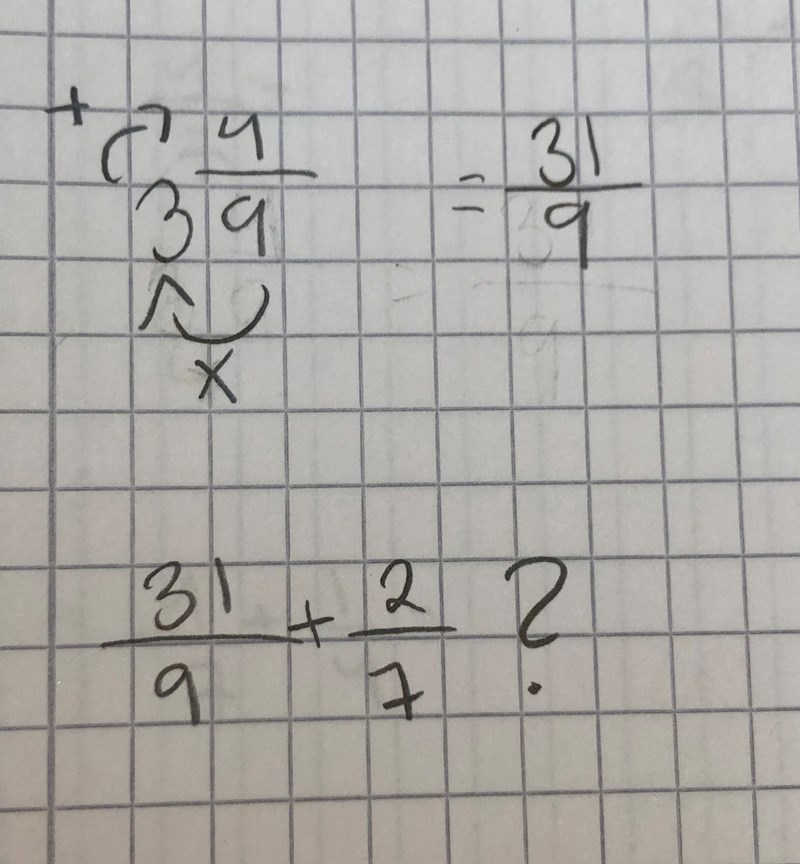 + 3 4/9 = 31/9
x
31/9 + 2/7 ?